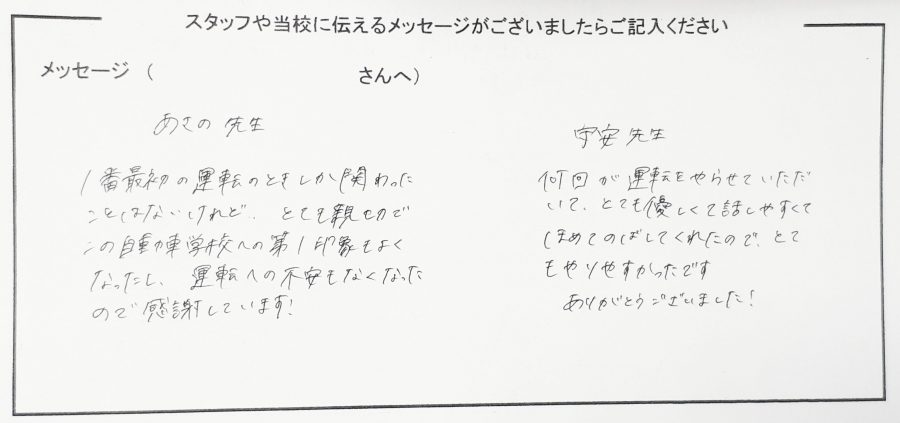 スタッフや当校に伝えるメッセージがございましたらご記入ください
メッセージ （　　　　　　　　　　さんへ）
あさの 先生
1番最初の運転のときしか関わった
ことはないけれど、とても親切で
この自動車学校への第1印象もよく
なったし、運転への不安もなくなった
ので感謝しています!
宇安 先生
何回か運転をやらせていただ
いて、とても優しくて話しやすくて
ほめてのばしてくれたので、とて
もやりやすかったです
ありがとうございました!